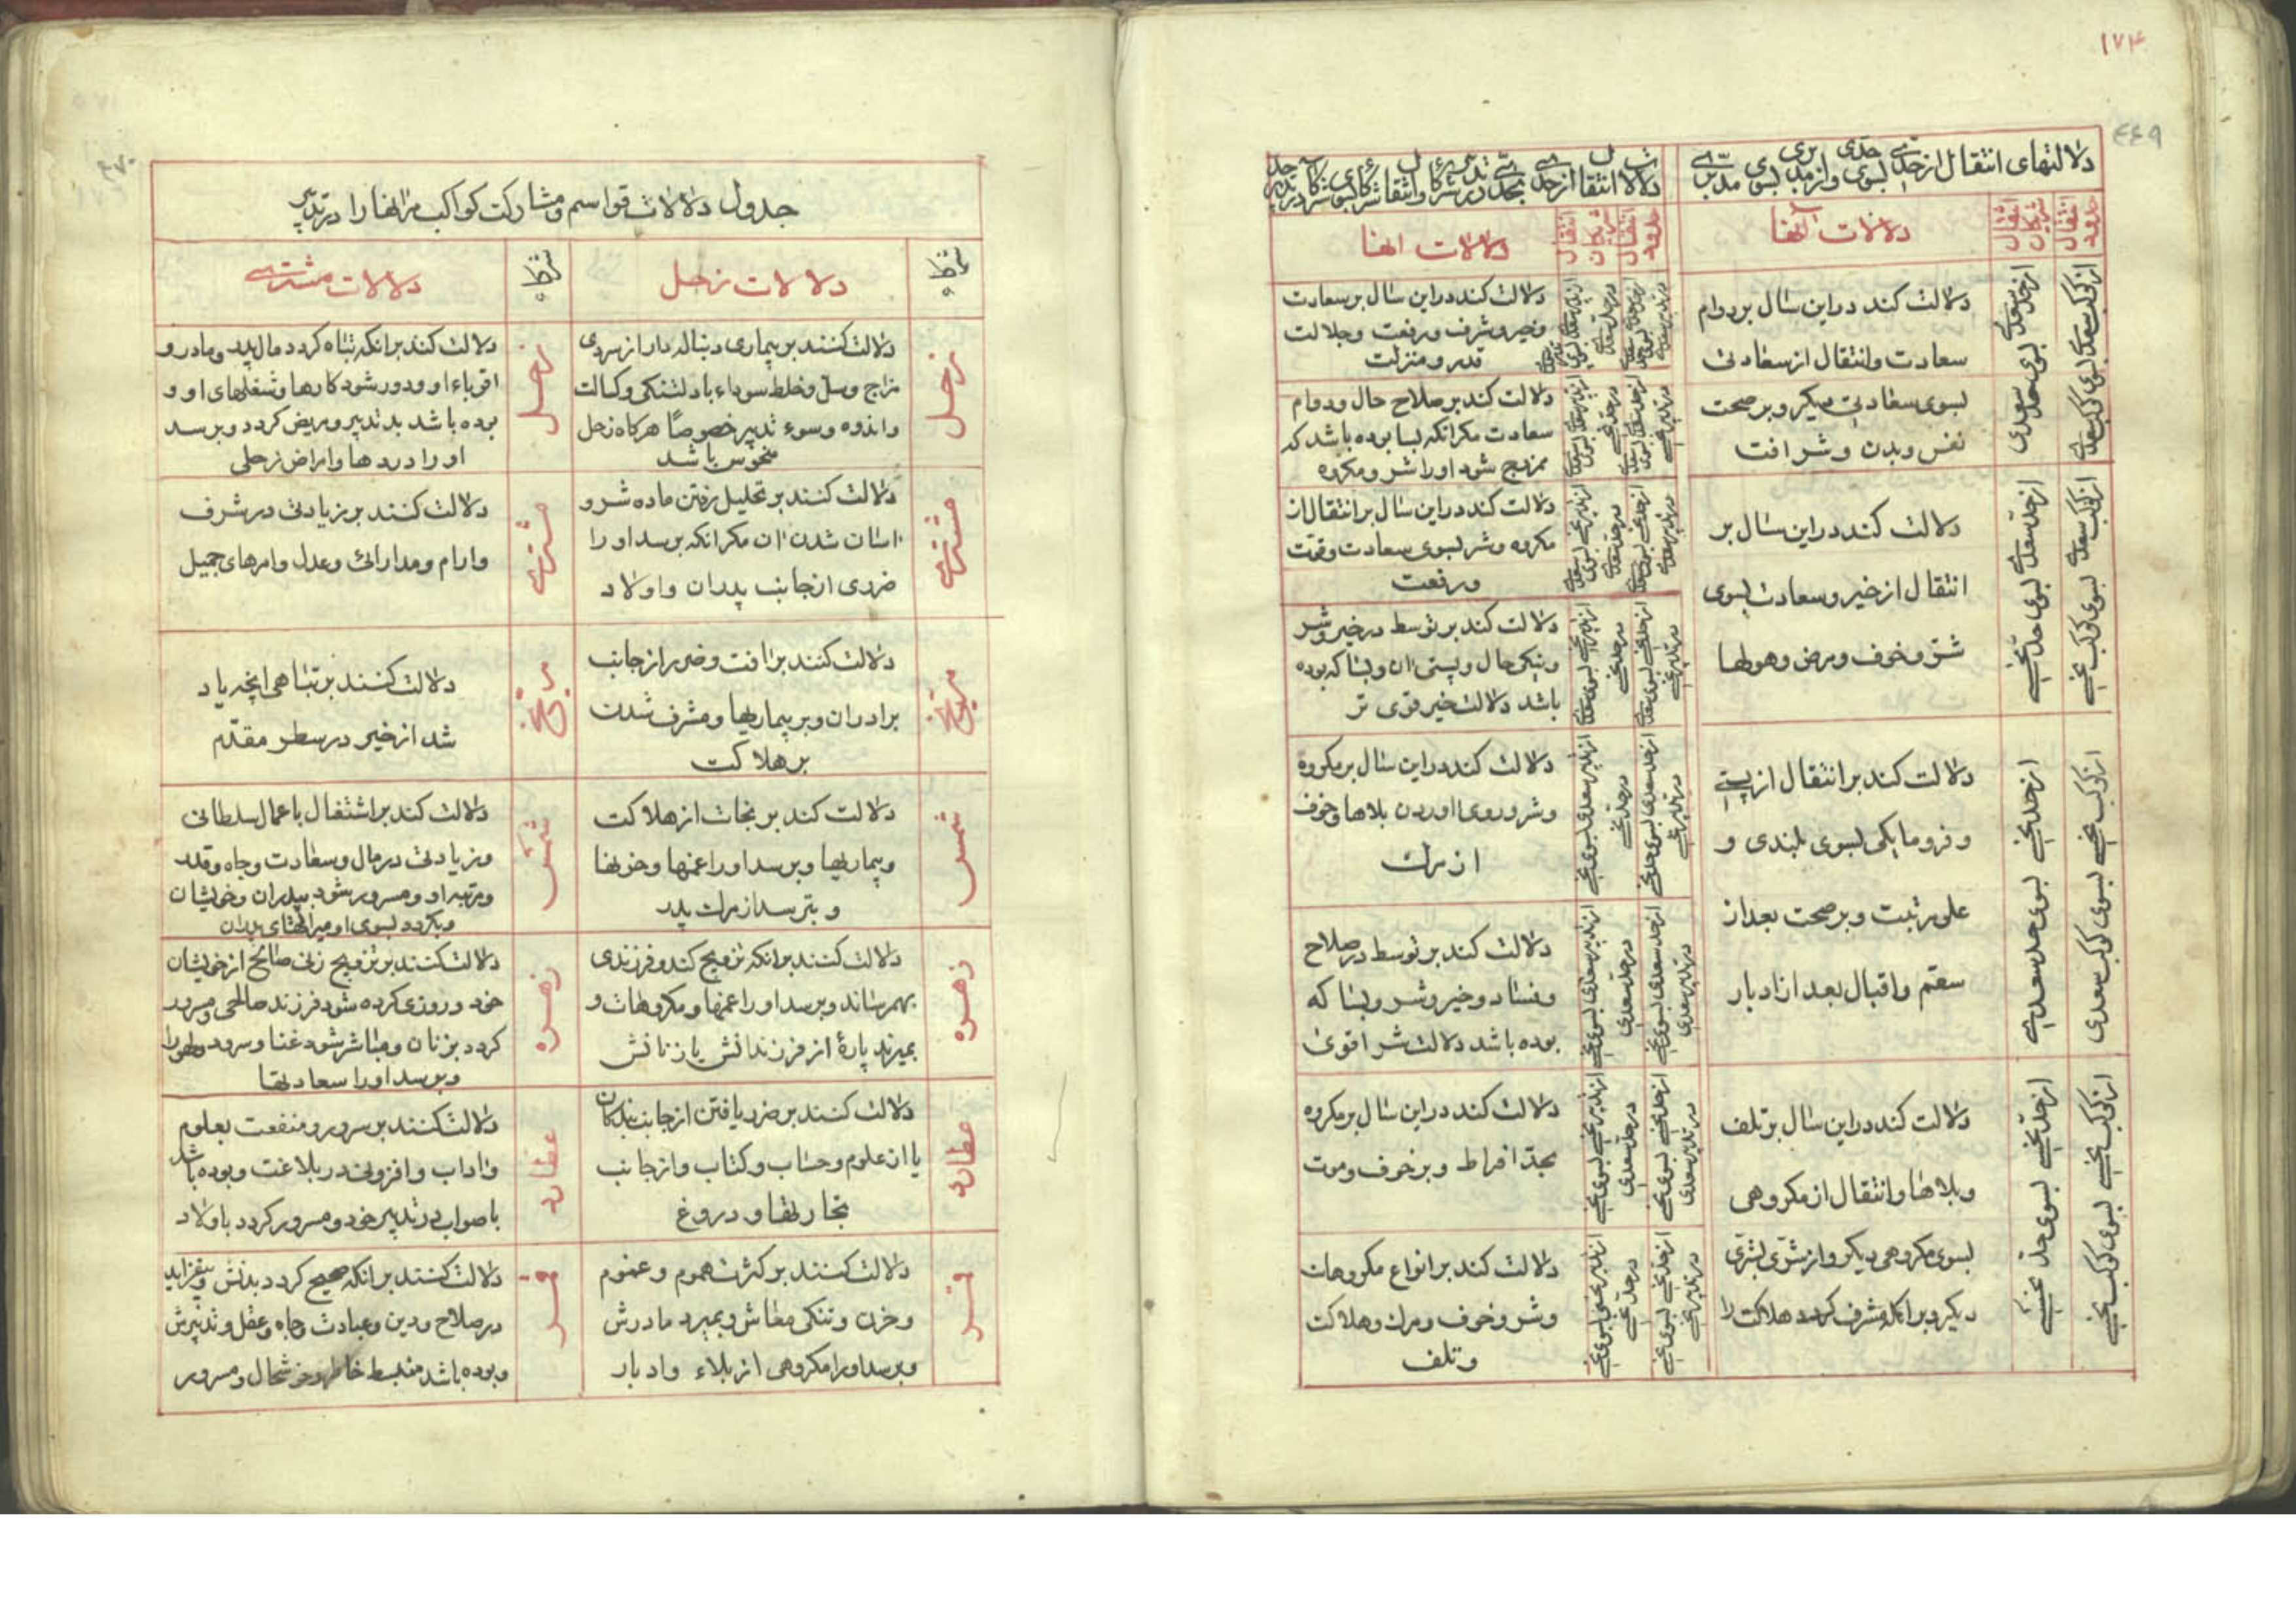 ١٧٤
٤٦٩
دلالتهای انتقال از حدی بسوی حدی و از مدبری بسوی مدبری
حدود انتقال
شریکان انتقال
دلالات آنها
از کوکب سعدی بسوی کوکب سعدی
از حد سعدی بسوی حد سعدی
دلالت کند در این سال بر دوام
سعادت و انتقال از سعادتی
بسوی سعادتی دیگر و بر صحت
نفس و بدن و شرافت
از کوکب سعدی بسوی کوکب نحسی
از حد سعدی بسوی حد نحسی
دلالت کند در این سال بر
انتقال از خیر و سعادت بسوی
شر و خوف و مرض و هولها
از کوکب نحسی بسوی کوکب سعدی
از حد نحسی بسوی حد سعدی
دلالت کند بر انتقال از پستی
و فرومایکی بسوی بلندی و
علو رتبت و بر صحت بعد از
سقم و اقبال بعد از ادبار
از کوکب نحسی بسوی کوکب نحسی
از حد نحسی بسوی حد نحسی
دلالت کند در این سال بر تلف
و بلاها و انتقال از مکروهی
بسوی مکروهی دیکر و از شری بشری
دیکر و بر آنکه مشرف کردد هلاکت را
حدود انتقال
شریکان انتقال
دلالات انها
دلالت کند در این سال بر سعادت
و خیر و شرف و رفعت و جلالت
قدر و منزلت
دلالت کند بر صلاح حال و دوام
سعادت مکر انکه بسا بوده باشد که
ممزوج شود او را شر و مکروه
دلالت کند در این سال بر انتقال از
مکروه و شر بسوی سعادت و قوت
و رفعت
دلالت کند بر توسط در خیر و شر
و نیکی حال و پستی ان و بسا که بوده
باشد دلالت خیر قوی تر
از مدبر سعدی بسوی نحسی
در حد نحسی
از حد سعدی بسوی حد نحسی
در تدبیر نحسی
دلالت کند در این سال بر مکروه
و شر و روی اوردن بلاها و خوف
از مرك
از مدبر سعدی بسوی نحسی
در حد سعدی
از حد سعدی بسوی نحسی
در تدبیر سعدی
دلالت کند بر توسط در صلاح
و فساد و خیر و شر و بسا که
بوده باشد دلالت شر اقوی
از مدبر نحسی بسوی نحسی
در حد سعدی
از حد نحسی بسوی نحسی
در تدبیر سعدی
دلالت کند در این سال بر مکروه
بحد افراط و بر خوف و موت
از مدبر نحسی بسوی نحسی
در حد نحسی
از حد نحسی بسوی نحسی
در تدبیر نحسی
دلالت کند بر انواع مکروهات
و شر و خوف و مرك و هلاکت
و تلف
٤٧٠
جدول دلالات قواسم و مشارکت کواکب مر انها را در تدبیر
شرکاء
دلالات زحل
شرکاء
دلالات مشتری
زحل
دلالت کنند بر بیماری دنباله دار از سردی
مزاج و سل و خلط سوداء با دلتنکی و کسالت
و اندوه و سوء تدبیر خصوصًا هرکاه زحل
منحوس باشد
زحل
دلالت کنند بر انکه تباه کردد مال پدر و مادر و
اقرباء او و دور شود کارها و شغلهای او و
بوده باشد بد تدبیر و مریض کردد و برسد
او را دردها و امراض زحلی
مشتری
دلالت کنند بر تحلیل رفتن ماده شر و
اسان شدن ان مکر انکه برسد او را
ضرری از جانب پدران و اولاد
مشتری
دلالت کنند بر زیادتی در شرف
و ارام و مدارائی و عدل و امرهای جمیل
مریخ
دلالت کنند بر افت و ضرر از جانب
برادران و بر بیماریها و مشرف شدن
بر هلاکت
مریخ
دلالت کنند بر تباهی انچه یاد
شد از خیر در سطر مقدم
شمس
دلالت کند بر نجات از هلاکت
و بیماریها و برسد او را غمها و خوفها
و بترسد از مرك پدر
شمس
دلالت کند بر اشتغال باعمال سلطانی
و زیادتی در مال و سعادت و جاه و قدر
و مرتبه او و مسرور شود بپدران و خویشان
و بکردد بسوی او میراثهای پدران
زهره
دلالت کنند بر انکه تزویج کند و فرزندی
بهمرساند و برسد او را غمها و مکروهات و
بمیرند پارهٔ از فرزندانش یا زنانش
زهره
دلالت کنند بر تزویج زنی صالح از خویشان
خود و روزی کرده شود فرزند صالحی و مسرور
کردد بزنان و مباشر شود غنا و سرود و لهو را
و برسد او را سعادتها
عطارد
دلالت کنند بر ضرر یافتن از جانب بندکان
یا از علوم و حساب و کتاب و از جانب
تجارتها و دروغ
عطارد
دلالت کنند بر سرور و منفعت بعلوم
و اداب و افزونی در بلاغت و بوده باشد
با صواب در تدبیر خود و مسرور کردد باولاد
قمر
دلالت کنند بر کثرت هموم و غموم
و حزن و تنکی معاش و بمیرد مادرش
و برسد او را مکروهی از بلاء و ادبار
قمر
دلالت کنند بر انکه صحیح کردد بدنش و بیفزاید
در صلاح و دین و عبادت و جاه و عقل و تدبیرش
و بوده باشد منبسط خاطر و خوشحال و مسرور